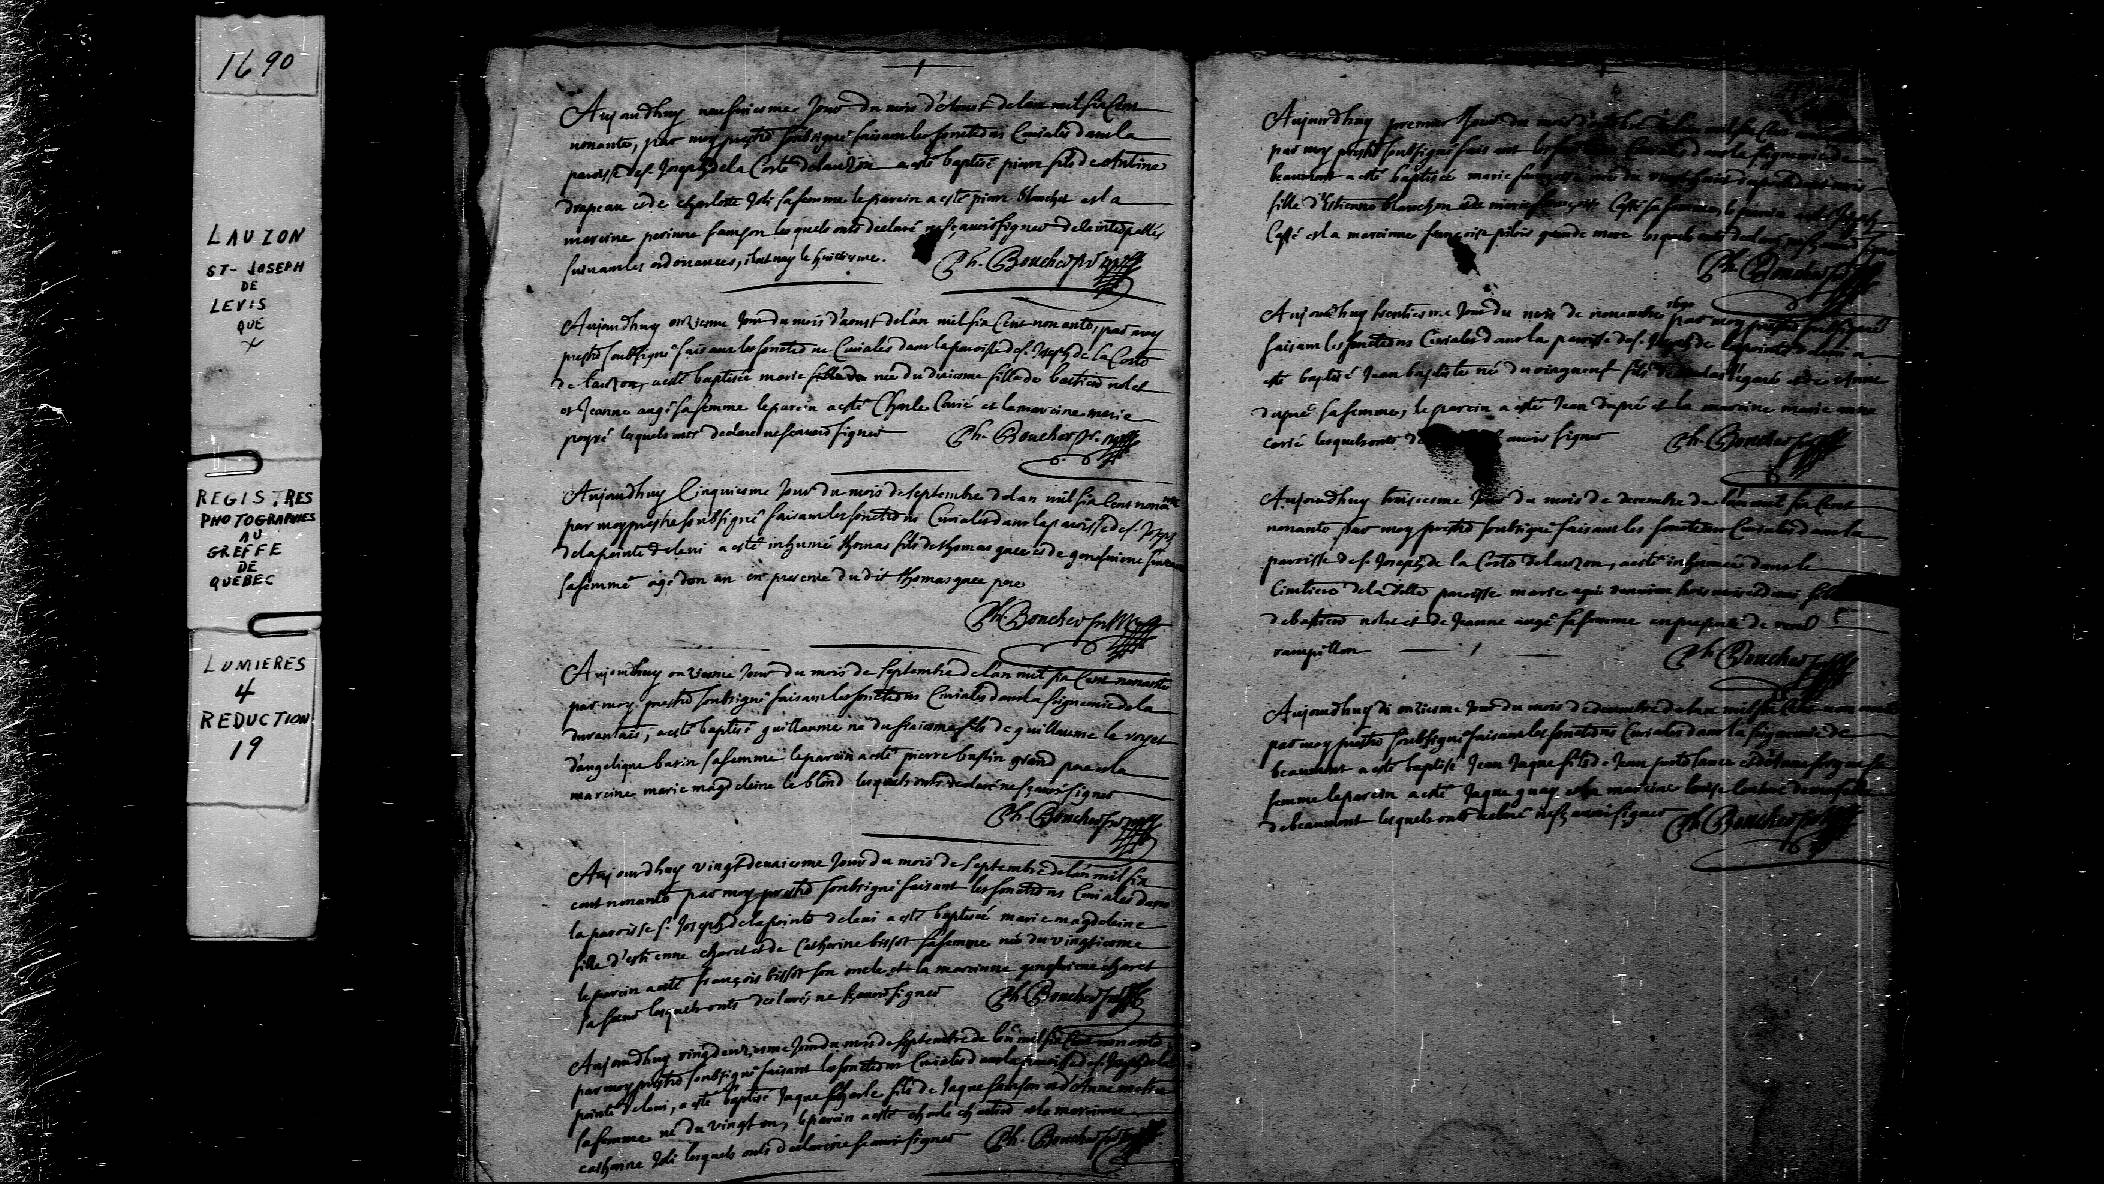 1690
LAUZON
ST-JOSEPH
DE
LEVIS
QUE
REGISTRES
PHOTOGRAPHIES
AU
GREFFE
DE
QUEBEC
LUMIERES
4
REDUCTION
19
Aujourdhuy neufuiesme Jour du mois d'Aoust de lan mil six Cent
nonante, par moy prestre soubsigné faisant les fonctions Curiales dans la
paroisse de s. Joseph de la Coste de lauzon a esté baptisé pierre fils de Antoine
drapeau et de charlotte Joli sa femme le parein a esté pierre blanchet et la
mareine perinne samson lesquels onts declaré ne sçavoir signer de ce interpellés
suivant les ordonances, il est nay le huitiesme. Ph. Boucher prstre
Aujourdhuy onziesme Jour du mois d'aoust de l'an mil six Cent nonante, par moy
prestre soubsigné faisant les fonctions Curiales dans la paroisse de s. Joseph de la Coste
de lauzon, a esté baptisée marie née du diziesme fille de bastien nolet
et Jeanne augé sa femme le parein a esté Charle Carié et la mareine marie
lesquels ont declaré ne scavoir signer Ph. Boucher pr.
Aujourdhuy Cinquiesme Jour du mois de septembre de lan mil six Cent nonante
par moy prestre soubsigné faisant les fonctions Curiales dans la paroisse de s. Joseph
de la pointe de levi a esté inhumé thomas fils de thomas et de
sa femme agé d'un an en presence du dit thomas pere
Ph. Boucher
Aujourdhuy onziesme Jour du mois de septembre de lan mil six Cent nonante
par moy prestre soubsigné faisant les fonctions Curiales dans la seigneurie de la
durantaie, a esté baptisé guillaume né du sixiesme fils de guillaume le royer
d'angelique basin sa femme le parein a esté pierre bastin grand pere et la
mareine marie magdeleine le blond lesquels onts declaré ne sçavoir signer
Ph. Boucher
Aujourdhuy vingt deuxiesme Jour du mois de septembre de lan mil six
cent nonante par moy prestre soubsigné faisant les fonctions Curiales dans
la paroisse s. Joseph de la pointe de levi a esté baptisée marie magdeleine
fille d'estienne charet et de Catherine bissot sa femme née du vingtiesme
le parein a esté françois bissot son oncle et la mareinne charet
sa soeur lesquels onts declarés ne sçavoir signer Ph. Boucher
Aujourdhuy vingt deuxiesme Jour du mois de septembre de lan mil six Cent nonante
par moy prestre soubsigné faisant les fonctions Curiales dans la paroisse de s. Joseph de la
pointe de levi, a esté baptisé Jaque Charle fils de Jaque samson et d'Anne metru
sa femme né du vingt on, le parein a esté charle et la mareinne
catherine Joli lesquels onts declaré ne scavoir signer Ph. Boucher
Aujourdhuy premier Jour du mois lan mil six Cent
par moy prestre soubsigné faisant les fonctions Curiales dans la seigneurie de
beaumont a esté baptisée marie françoise née du vingt
fille d'Estienne blanchon et de marie françoise Casse sa femme, le parein a esté Joseph
Casse et la mareinne françoise pilois grande mere lesquels onts declaré ne sçavoir signer
Ph. Boucher
Aujourdhuy trentiesme Jour du mois de nouembre 1690 par moy prestre soubsigné
faisant les fonctions Curiales dans la paroisse de s. Joseph de la pointe de levi a
esté baptisé Jean baptiste né du vingneuf fils et de Anne
dupré sa femme, le parein a esté Jean dupré et la mareine marie anne
carié lesquels onts signer Ph. Boucher
Aujourdhuy troisiesme Jour du mois de decembre de lan mil six Cent
nonante par moy prestre soubsigné faisant les fonctions Curiales dans la
paroisse de s. Joseph de la Coste de lauzon, a esté inhumée dans le
Cimtiere de la ditte paroisse marie agée d'environ trois mois et demi fille
de bastien nolet et de Jeanne augé sa femme en presence de rené
rampillon Ph. Boucher
Aujourdhuy onziesme Jour du mois de decembre de lan mil six Cent nonante
par moy prestre soubsigné faisant les fonctions Curiales dans la seigneurie de
beaumont a esté baptisé Jean Jaque fils de Jean et d'Anne sa
femme le parein a esté Jaque guay et la mareine
de beaumont lesquels onts declaré ne sçavoir signer Ph. Boucher